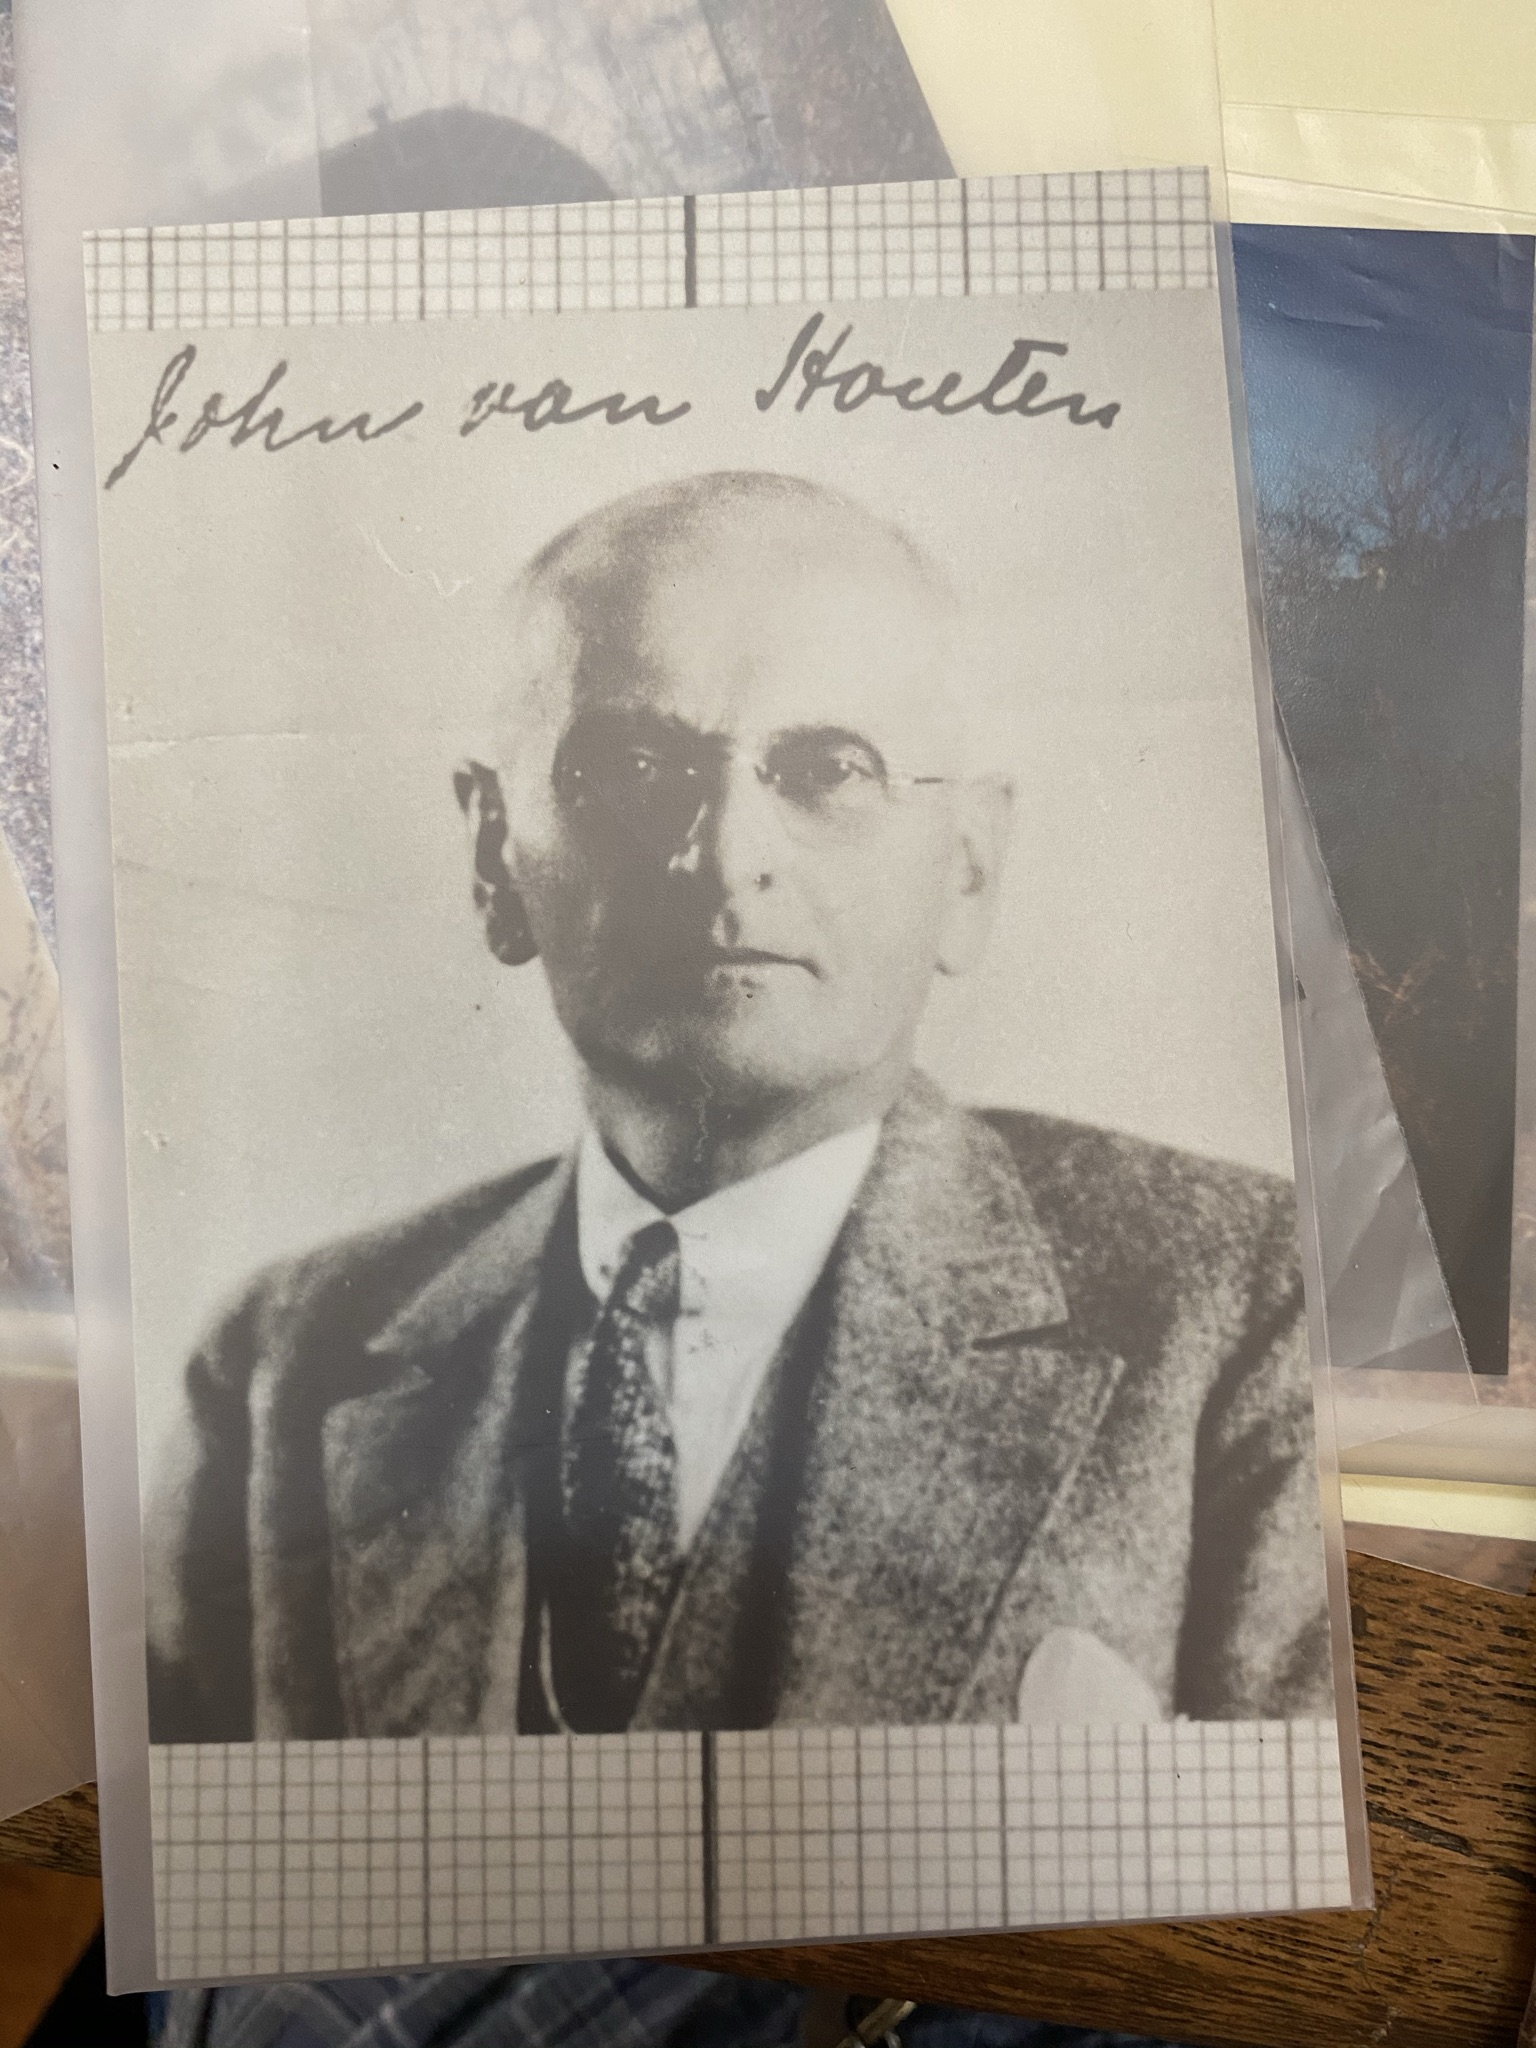 John van Houten